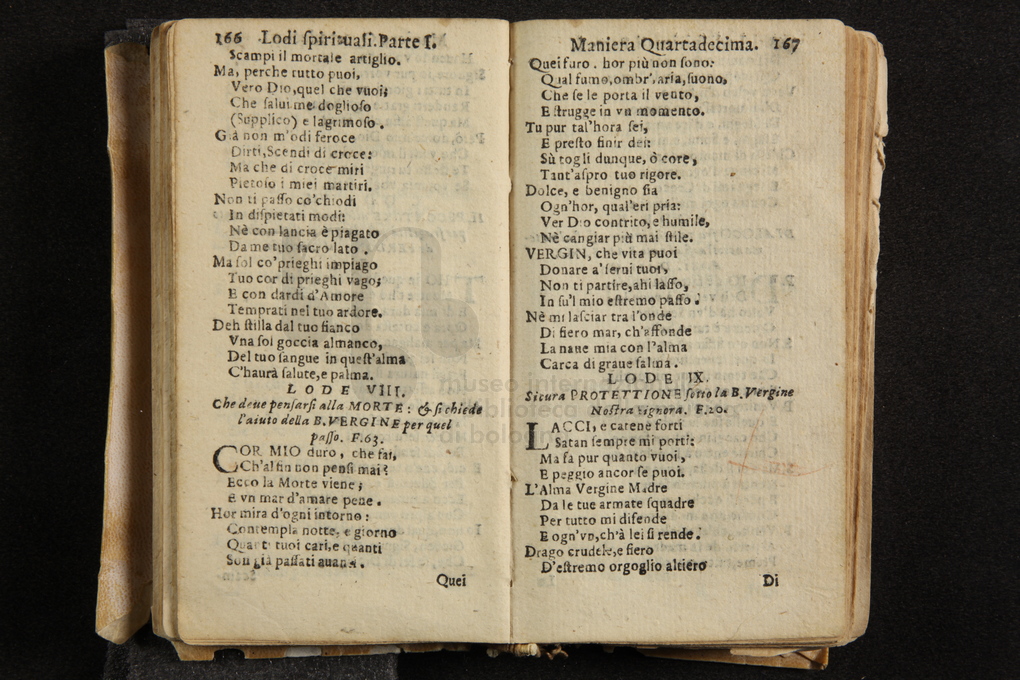 166 Lodi ſpirituali. Parte I.
Scampi il mortale artiglio.
Ma, perche tutto puoi,
Vero Dio, quel che vuoi;
Che ſalui me doglioſo
(Supplico) e lagrimoſo.
Già non m'odi feroce
Dirti, Scendi di croce:
Ma che di croce miri
Pietoſo i miei martiri.
Non ti paſſo co'chiodi
In diſpietati modi:
Nè con lancia è piagato
Da me tuo ſacro lato.
Ma ſol co'prieghi impiago
Tuo cor di prieghi vago;
E con dardi d'Amore
Temprati nel tuo ardore.
Deh ſtilla dal tuo fianco
Vna ſol goccia almanco,
Del tuo ſangue in queſt'alma
C'haurà ſalute, e palma.
LODE VIII.
Che deue penſarſi alla MORTE: & ſi chiede
l'aiuto della B. VERGINE per quel
paſſo. F. 63.
COR MIO duro, che fai,
Ch'al fin non penſi mai?
Ecco la Morte viene;
E vn mar d'amare pene.
Hor mira d'ogni intorno:
Contempla notte, e giorno
Quanti tuoi cari, e quanti
Son già paſſati auanti.
Quei
Maniera Quartadecima. 167
Quei furo, hor più non ſono:
Qual fumo, ombr', aria, ſuono,
Che ſe le porta il vento,
E ſtrugge in vn momento.
Tu pur tal'hora ſei,
E preſto finir dei:
Sù togli dunque, ò core,
Tant'aſpro tuo rigore.
Dolce, e benigno ſia
Ogn'hor, qual'eri pria:
Ver Dio contrito, e humile,
Nè cangiar più mai ſtile.
VERGIN, che vita puoi
Donare a' ſerui tuoi,
Non ti partire, ahi laſſo,
In ſu'l mio eſtremo paſſo.
Nè mi laſciar tra l'onde
Di fiero mar, ch'affonde
La naue mia con l'alma
Carca di graue ſalma.
LODE IX.
Sicura PROTETTIONE ſotto la B. Vergine
Noſtra signora. F. 20.
LACCI, e catene forti
Satan ſempre mi porti:
Ma fa pur quanto vuoi,
E peggio ancor ſe puoi.
L'Alma Vergine Madre
Da le tue armate ſquadre
Per tutto mi difende
E ogn'vn, ch'à lei ſi rende.
Drago crudele, e fiero
D'eſtremo orgoglio altiero
Di
museo internazionale
biblioteca della musica
di bologna